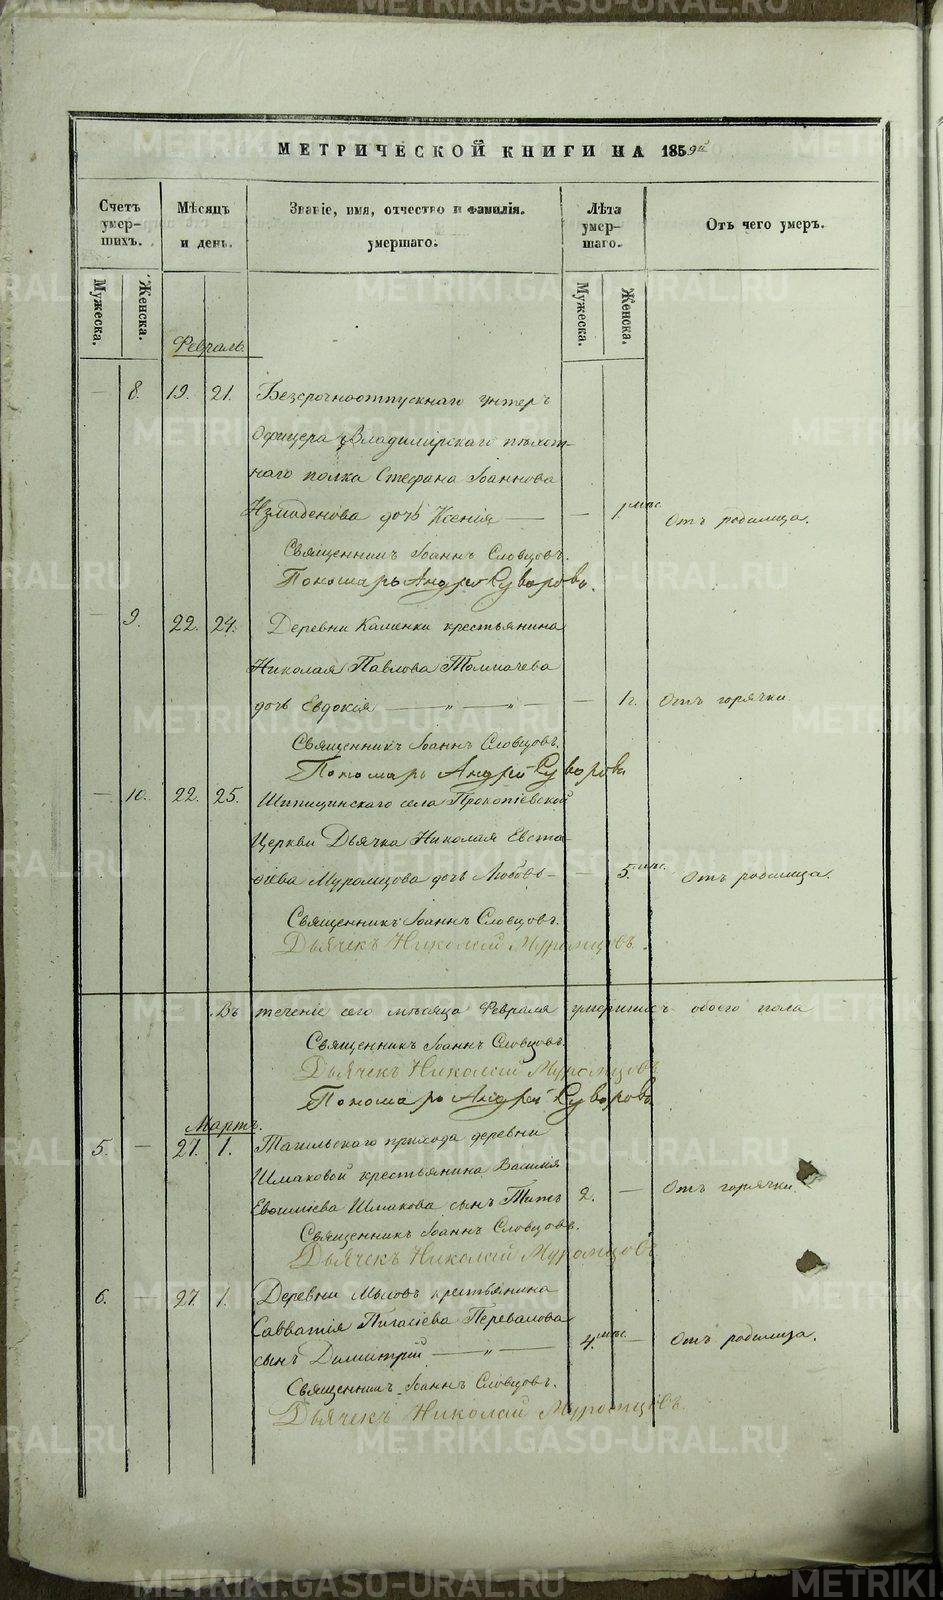 МЕТРИЧЕСКОЙ КНИГИ НА 1859й
Счетъ умер-шихъ.
Мѣсяцъ и день.
Званіе, имя, отчество и фамилія. умершаго.
Лѣта умер-шаго.
Отъ чего умеръ.
Мужеска.
Женска.
Мужеска.
Женска.
Февраль.
— 8. 19. 21. Безсрочноотпускнаго унтеръ
Офицера Владимірскаго пѣхот-
наго полка Стефана Іоаннова
дочь Ксенія — — 1 мѣс. Отъ родимца.
Священникъ Іоаннъ Словцовъ.
Пономарь Андрей Суворовъ.
— 9. 22. 24. Деревни Каменки крестьянина
Николая Павлова Толмачева
дочь Евдокія — " — " — — 1 г. Отъ горячки.
Священникъ Іоаннъ Словцовъ.
Пономарь Андрей Суворовъ
— 10. 22. 25. Шипицинскаго села Прокопіевской
Церкви Дьячка Николая Евста-
фіева Муромцова дочь Любовь — — 5. мѣс. Отъ родимца.
Священникъ Іоаннъ Словцовъ.
Дьячекъ Николай Муромцовъ.
Въ теченіе сего мѣсяца Февраля умершихъ обоего пола
Священникъ Іоаннъ Словцовъ.
Дьячекъ Николай Муромцовъ
Пономарь Андрей Суворовъ
Мартъ.
5. — 27. 1. Тагильскаго прихода деревни
Шмаковой крестьянина Василія
Евфиміева Шмакова сынъ Титъ 2. — Отъ горячки.
Священникъ Іоаннъ Словцовъ.
Дьячекъ Николай Муромцовъ
6. — 27. 1. Деревни Мысовъ крестьянина
Савватія Пигасіева Перевалова
сынъ Димитрій — " — 4. мѣс. — Отъ родимца.
Священникъ Іоаннъ Словцовъ.
Дьячекъ Николай Муромцовъ.
METRIKI.GASO-URAL.RU